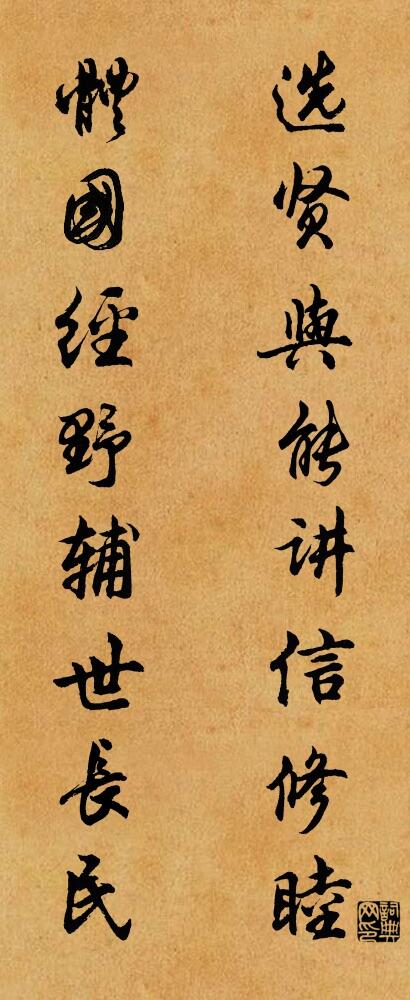 选贤與能讲信修睦
體國經野辅世長民
詞典网印